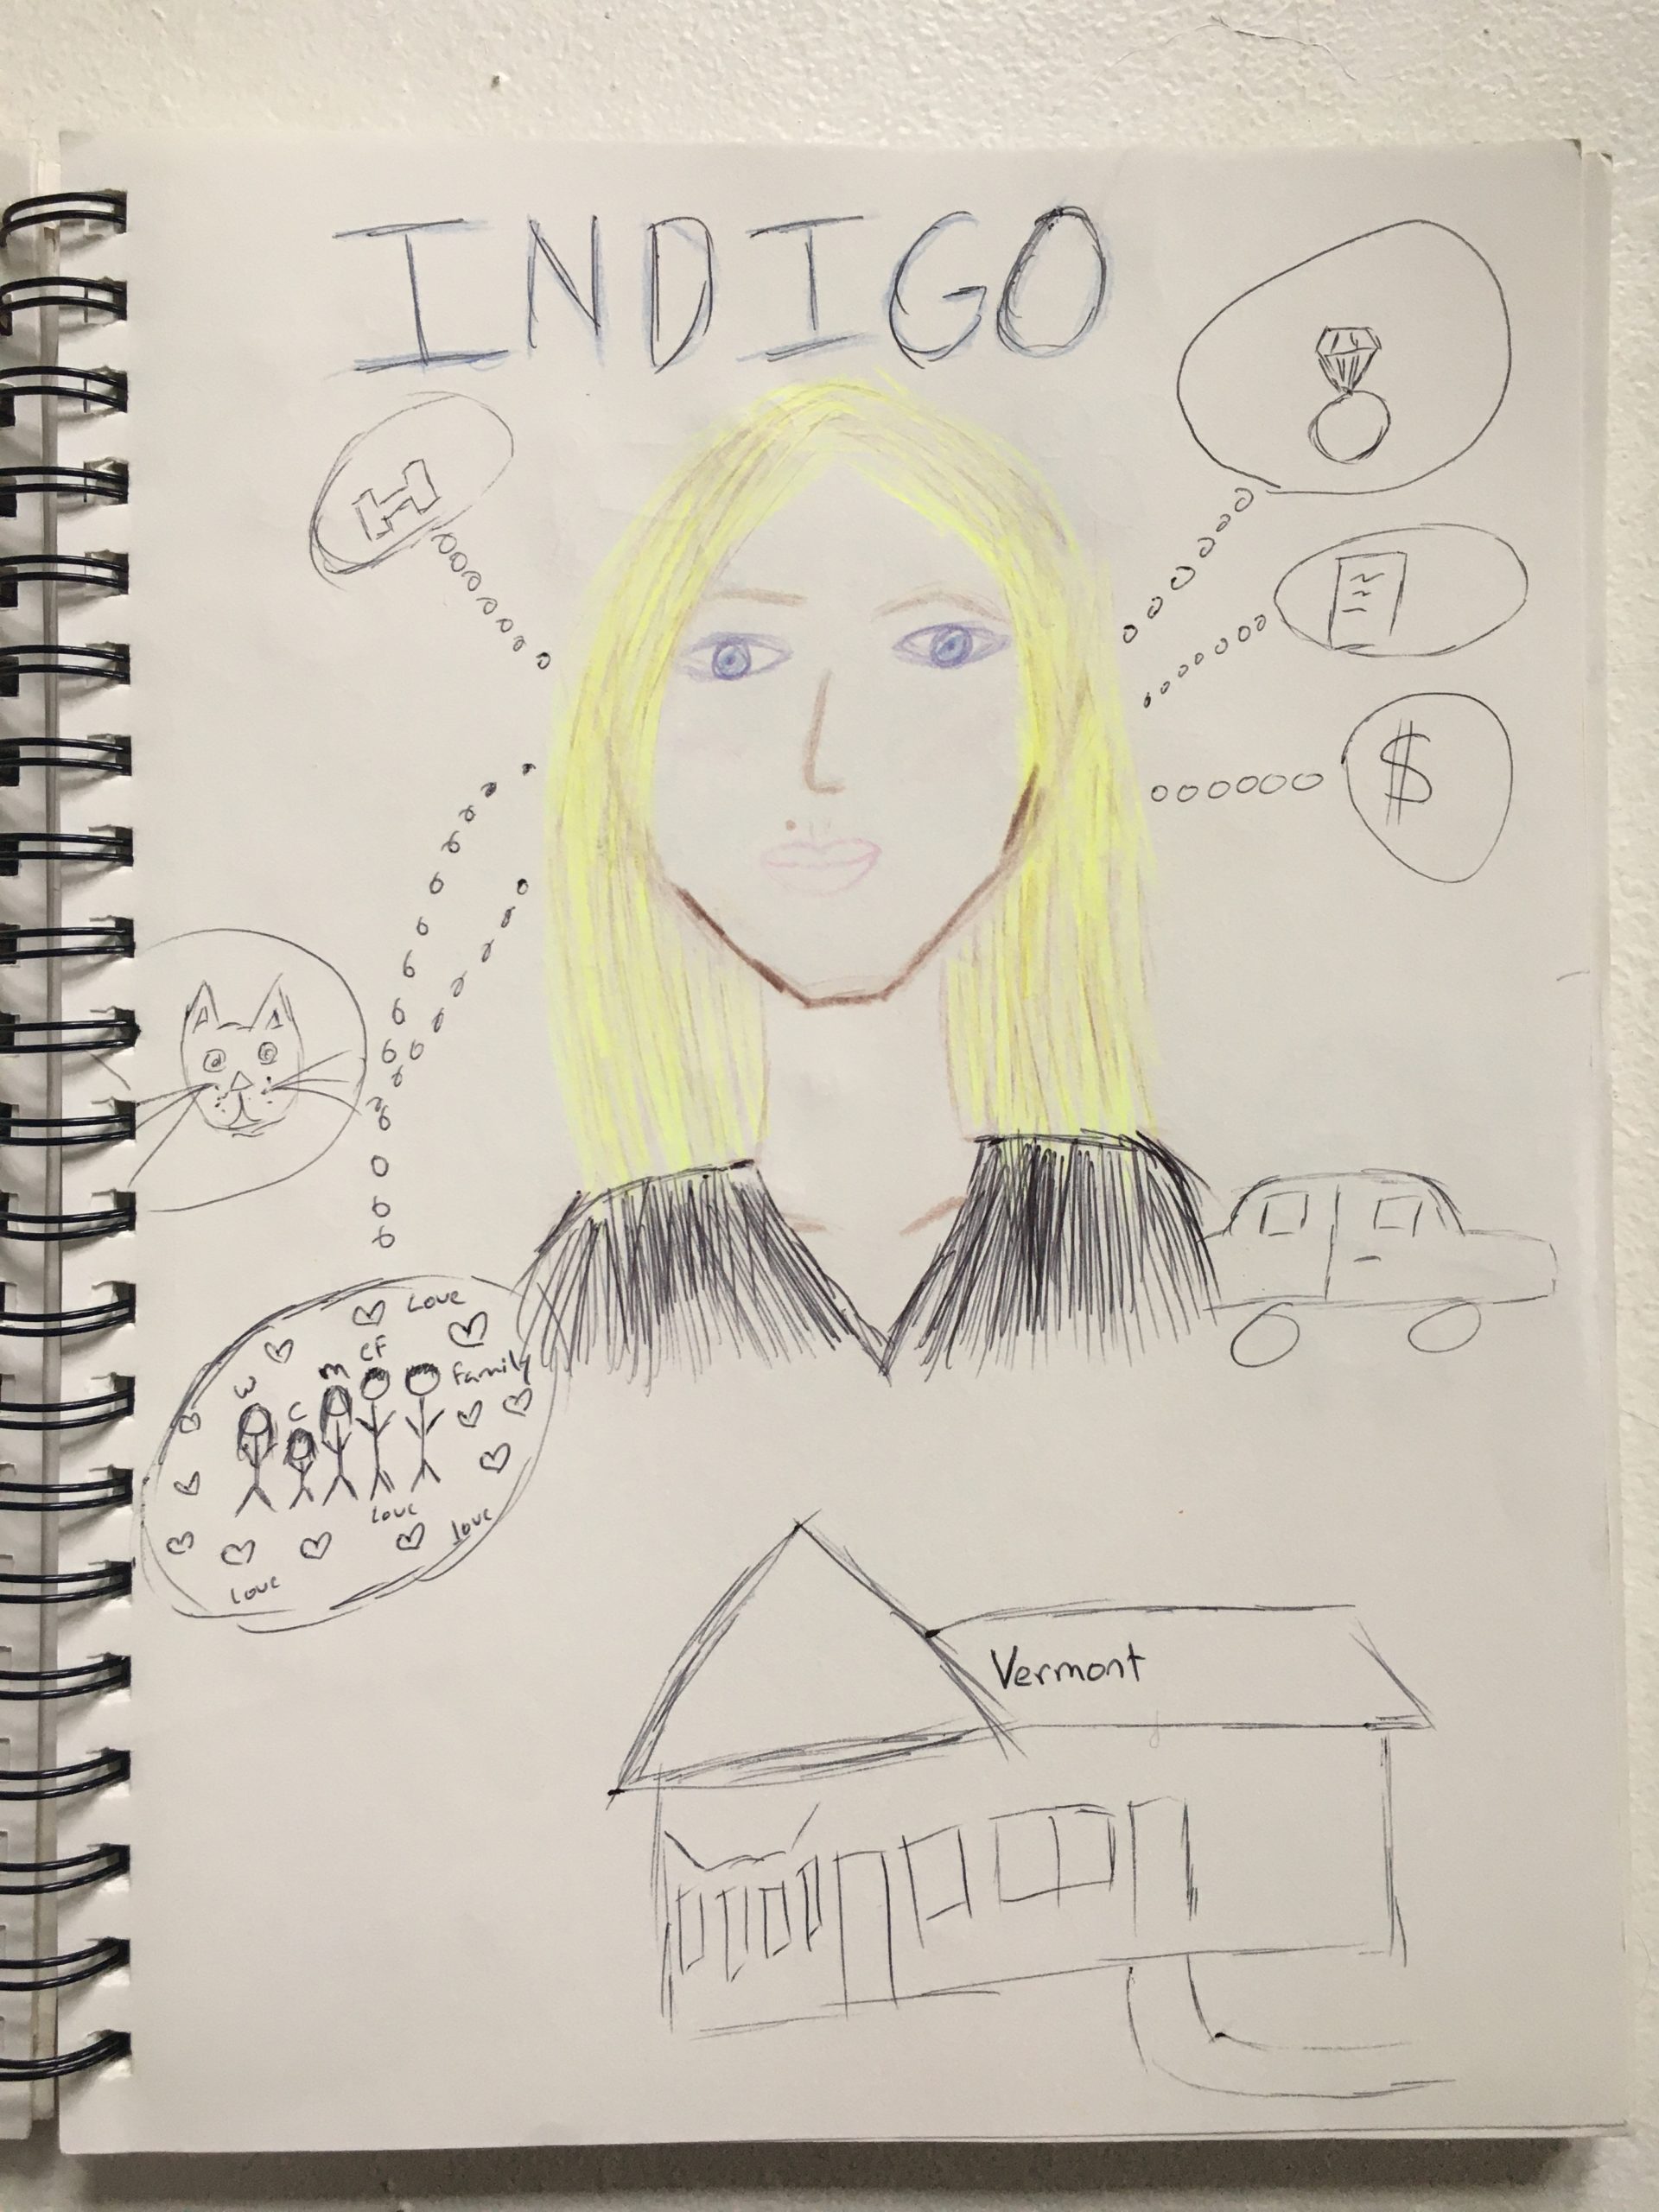 INDIGO
H
$
Love
CF
m
Family
W
C
Love
Love
Love
Vermont